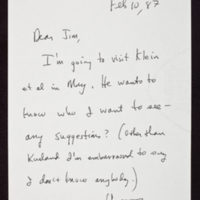 Feb 10, 87
Dear Jim,
I'm going to visit Klein
et al in May. He wants to
know who I want to see—
any suggestions? (Other than
I'm embarrassed to say
I don't know anybody.)